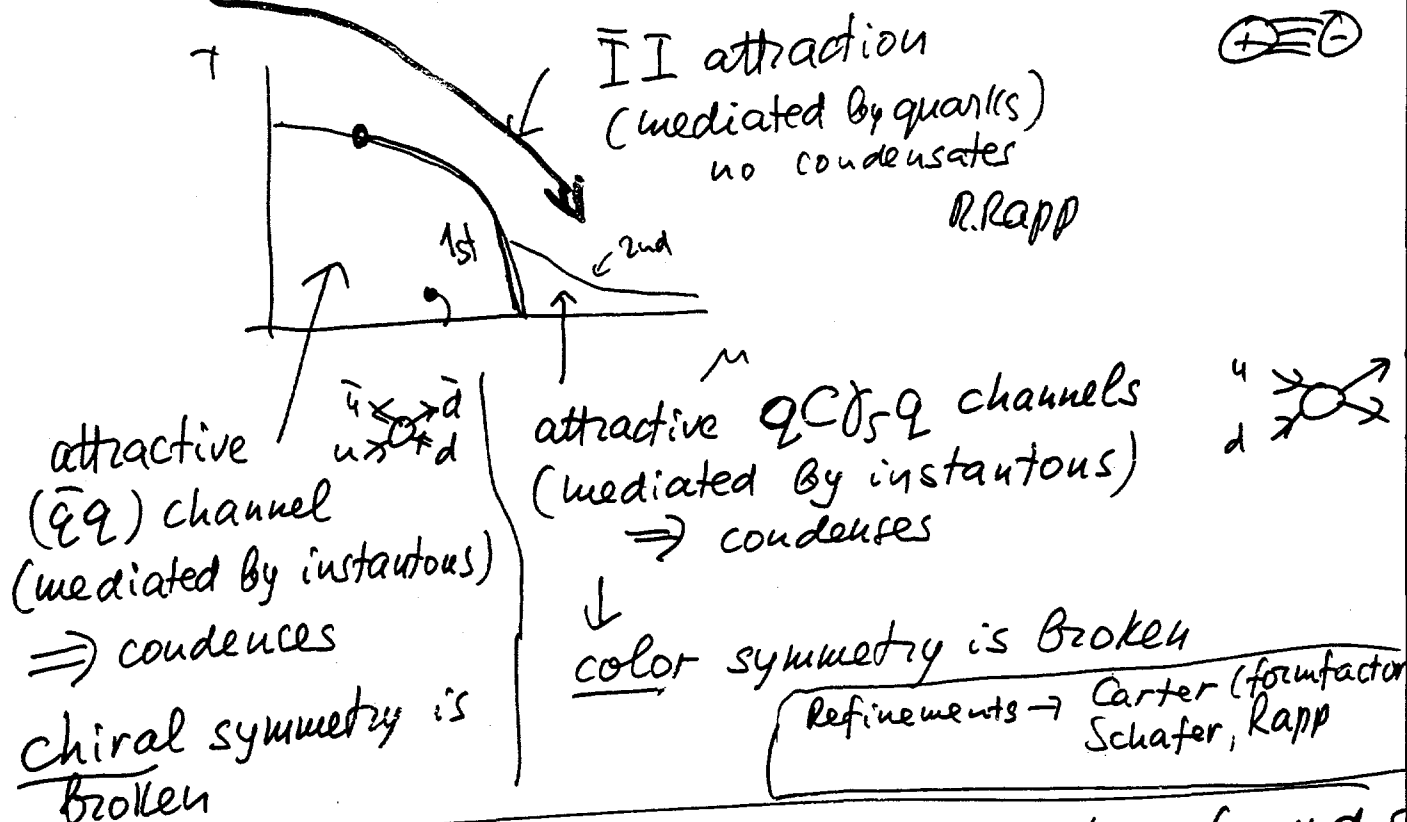 T
ĪI attraction
(mediated by quarks)
no condensates
R.Rapp
+ -
1st
2nd
μ
ū d̄
u d
attractive
(q̄q) channel
(mediated by instantons)
⇒ condences
chiral symmetry is
broken
attractive qCγ₅q channels
(mediated by instantons)
⇒ condenses
↓
color symmetry is broken
u
d
Refinements → Carter (formfactor
Schafer, Rapp